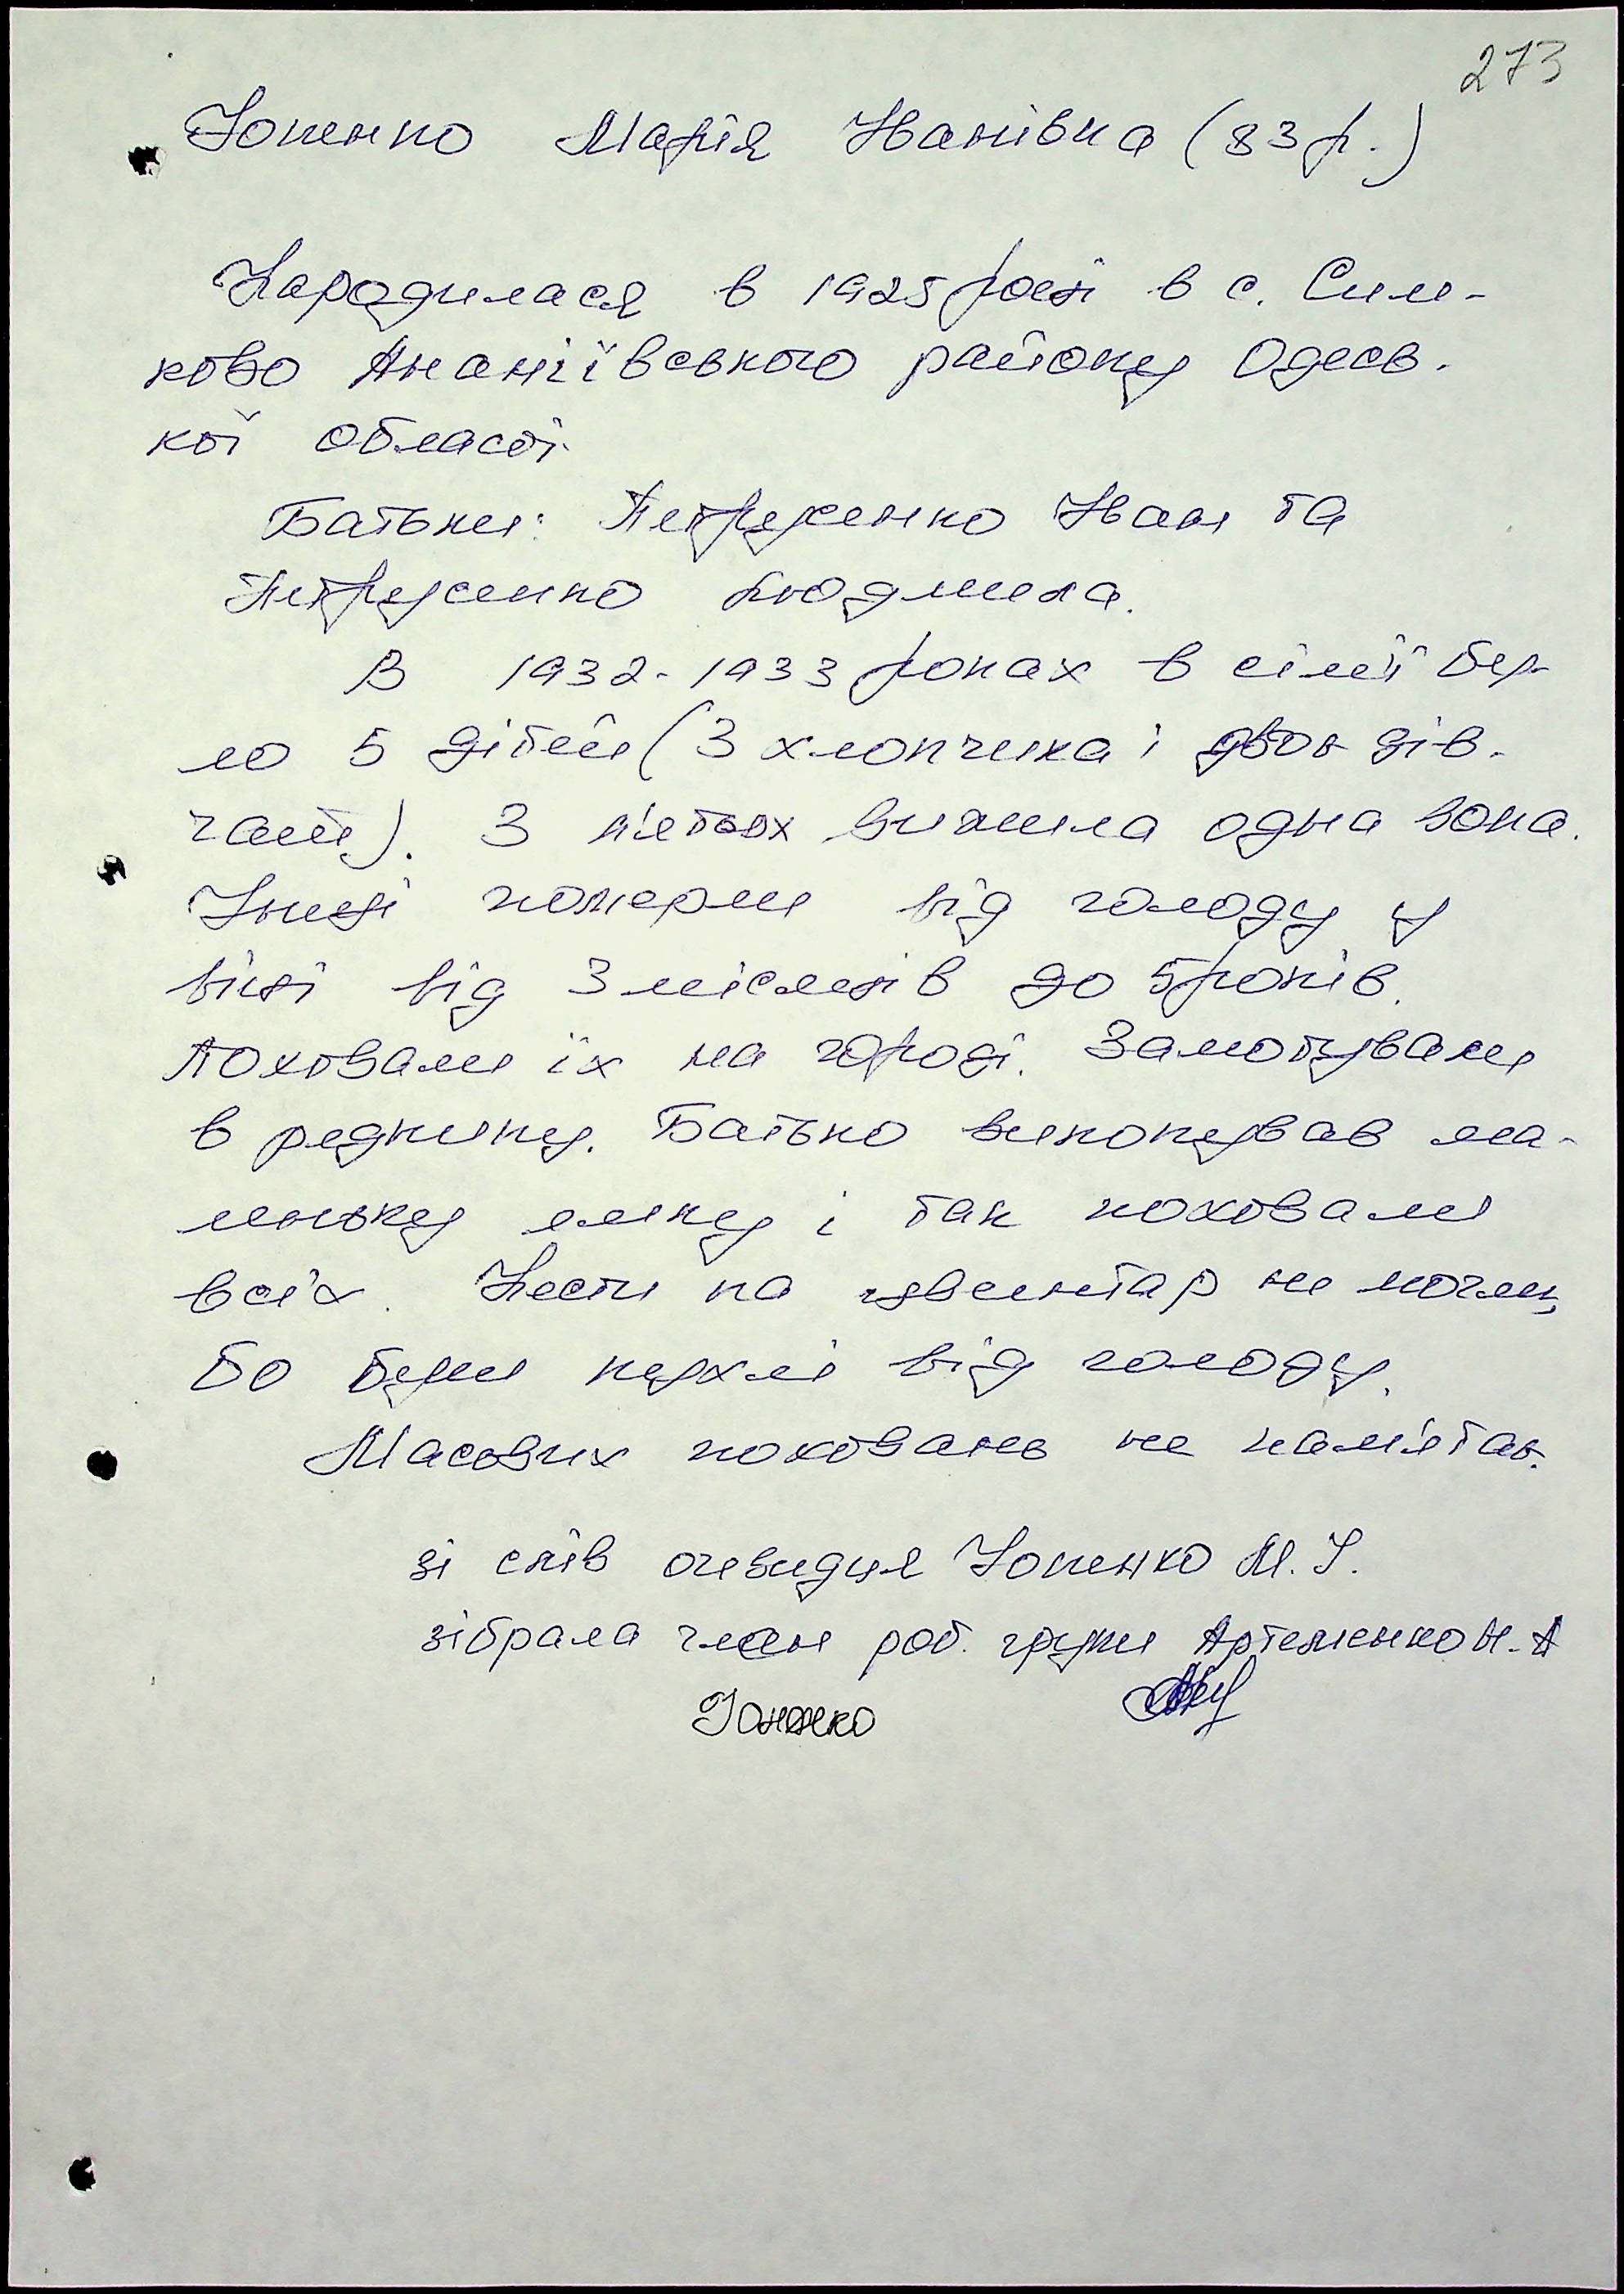 273
Іоненко Марія Іванівна (83 р.)
Народилася в 1925 році в с. Сим-
ково Ананіївського району Одесь-
кої області.
Батьки: Петруженко Іван та
Петруженко Людмила.
В 1932-1933 роках в сім'ї бу-
ло 5 дітей (3 хлопчика і двоє дів-
чат). З п'ятьох вижила одна вона.
Інші померли від голоду у
віці від 3 місяців до 5 років.
Поховали їх на городі. Замотували
в ряднину. Батько викопував ма-
леньку ямку і так поховали
всіх. Нести на цвинтар не могли,
бо були пухлі від голоду.
Масових поховань не пам'ятає.
зі слів очевидця Іоненко М. І.
зібрала член роб. групи Артеменко Н. А
Іоненко